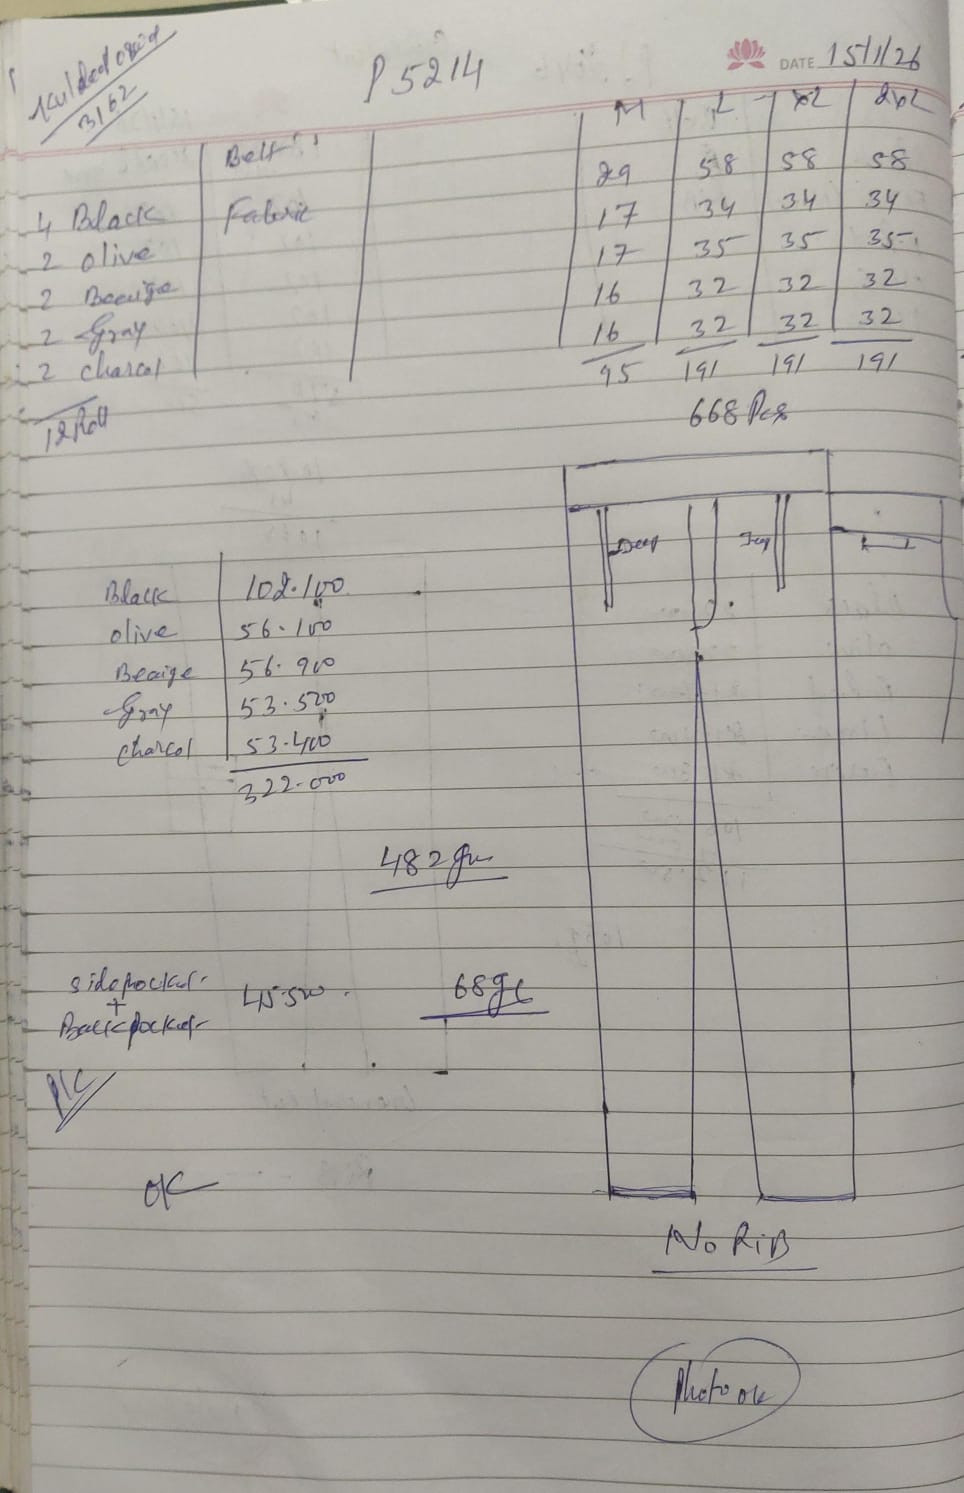 3162
P 5214
DATE 15/1/26
M L XL 2XL
Belt 29 58 58 58
4 Black Fabric 17 34 34 34
2 olive 17 35 35 35
2 Beaige 16 32 32 32
2 Gray 16 32 32 32
2 charcol 95 191 191 191
12 Roll
668 Pcs
Deep
Black 102.100
olive 56.100
Beaige 56.900
Gray 53.520
charcol 53.400
322.000
482 gm
side pocket
+
Back pocket 45.500 68
P/C
OK
No RiB
Photo ok